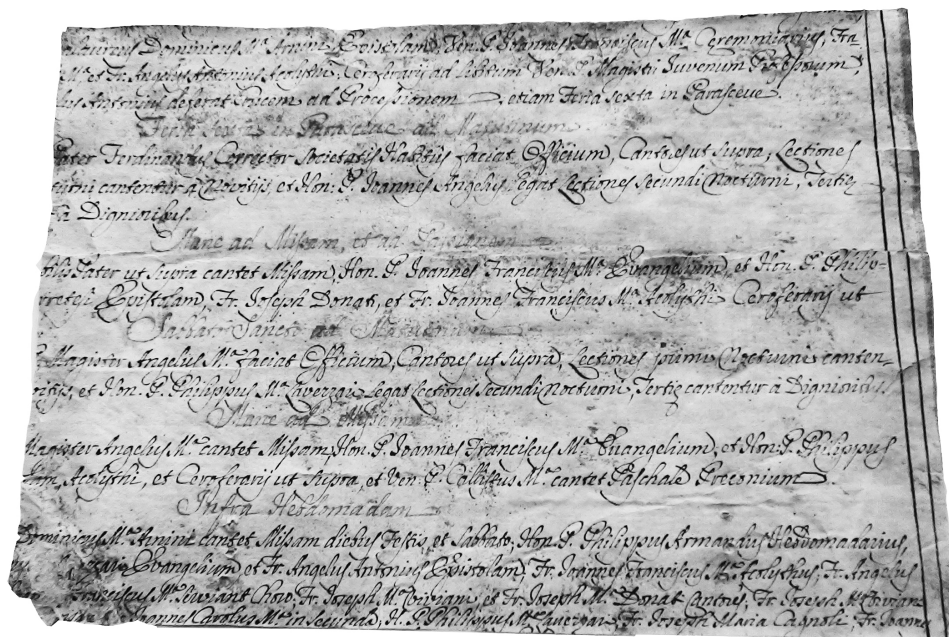 Dominicus M.ª Amini Epistolam, Ven. P. Joannes Franciscus M.ª Ceremoniarius, Fra-
M.ª et Fr. Angelus Antonius Acolythi, Ceroferarij ad libitum Ven. P. Magistri Juvenum Professorum,
Antonius deferat Crucem ad Processionem, etiam Feria sexta in Parasceve.
Feria sexta in Parasceve ad Matutinum
Pater Ferdinandus Corrector Societatis Habitus faciat Officium, Cantores ut supra, Lectiones
cantentur a Novitijs, et Hon. P. Joannes Angelus legat Lectiones secundi Nocturni, Tertiæ
a Dignioribus.
Mane ad Missam, et ad
Pater ut supra cantet Missam, Hon. P. Joannes Franciscus M.ª Evangelium, et Hon. P. Philip-
Epistolam, Fr. Joseph Donati, et Fr. Joannes Franciscus M.ª Acolythi Ceroferarij ut
Sabbato Sancto ad Matutinum
Magister Angelus M.ª faciat Officium, Cantores ut supra, Lectiones primi Nocturni canten-
et Hon. P. Philippus M.ª Lavezzari legat Lectiones secundi Nocturni, Tertiæ cantentur a Dignioribus.
Mane ad Missam
Magister Angelus M.ª cantet Missam, Hon. P. Joannes Franciscus M.ª Evangelium, et Hon. P. Philippus
Acolythi, et Ceroferarij ut supra, et Ven. P. Callistus M.ª cantet Paschale Preconium.
Infra Hebdomadam
Dominicus M.ª Amini cantet Missam diebus Festis, et Sabbato, Hon. P. Philippus Armandus Hebdomadarius,
Evangelium, et Fr. Angelus Antonius Epistolam, Fr. Joannes Franciscus M.ª Acolythus, Fr. Angelus
Franciscus M.ª serviant Choro, Fr. Joseph M.ª et Fr. Joseph M.ª Donati Cantores, Fr. Joseph M.ª
Joannes Carolus M.ª in secunda, H. P. Philippus M.ª Lavezzari, Fr. Joseph Maria Cagnoli, Fr. Joannes